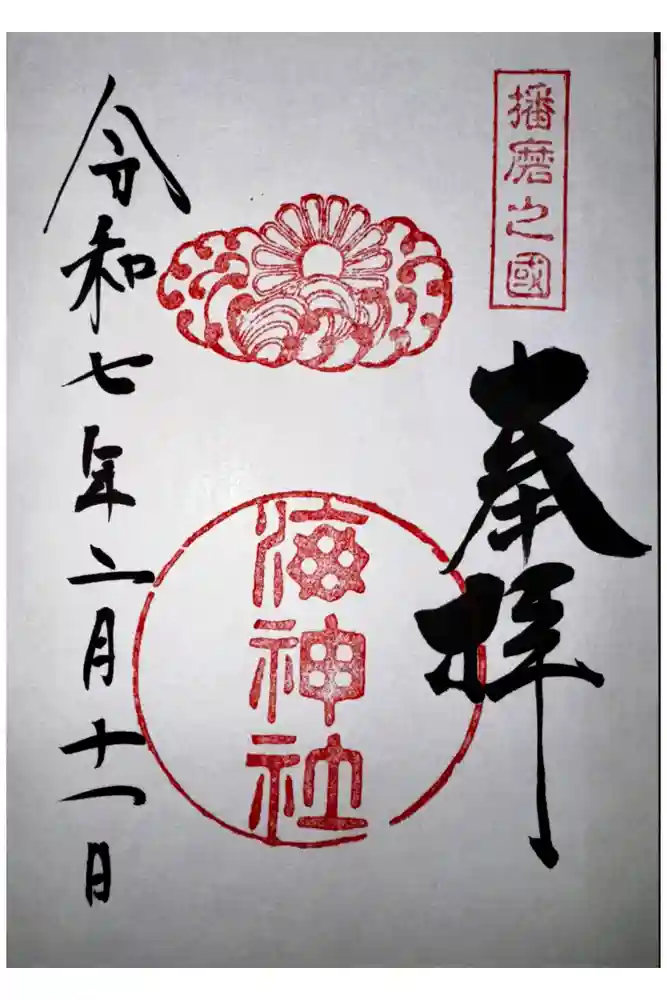 播磨之國
奉拝
海神社
令和七年二月十一日